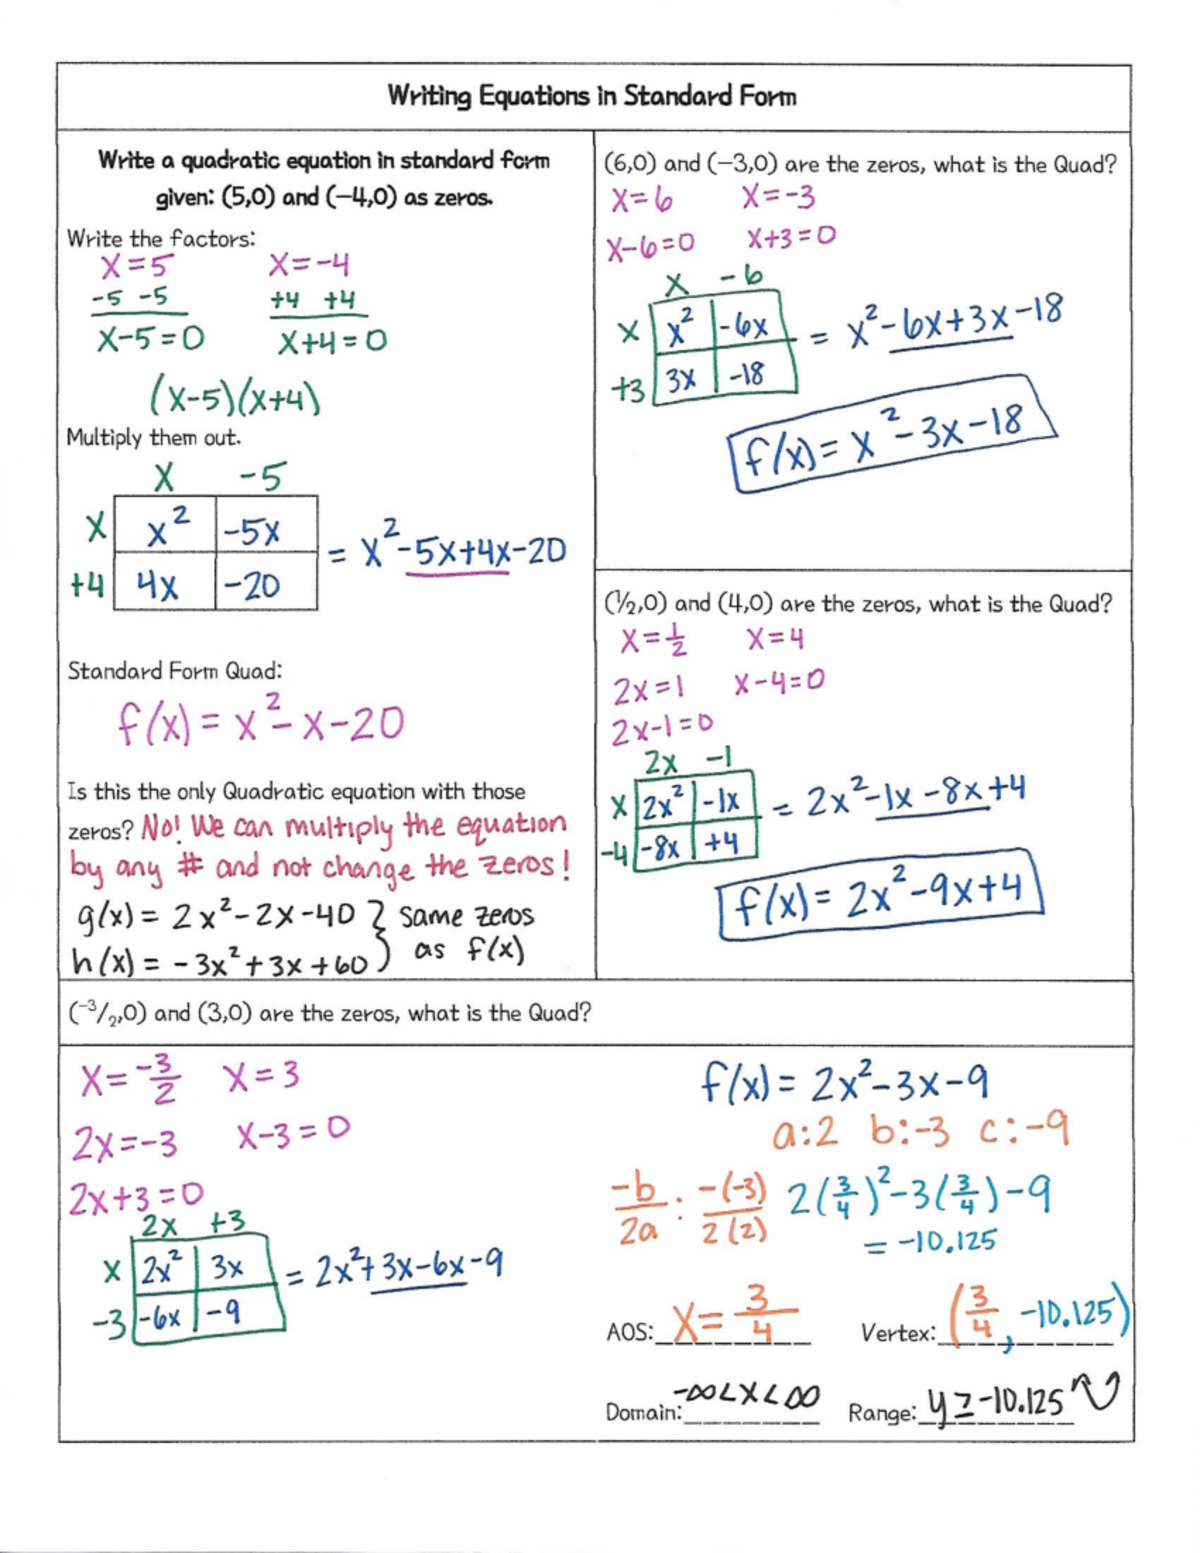 Writing Equations in Standard Form
Write a quadratic equation in standard form
given: (5,0) and (−4,0) as zeros.
Write the factors:
x=5 x=-4
-5 -5 +4 +4
x-5=0 x+4=0
(x-5)(x+4)
Multiply them out.
x -5
x x² -5x
= x²-5x+4x-20
+4 4x -20
Standard Form Quad:
f(x) = x²-x-20
Is this the only Quadratic equation with those
zeros? No! We can multiply the equation
by any # and not change the zeros!
g(x) = 2x²-2x-40 } same zeros
h(x) = -3x²+3x+60 as f(x)
(6,0) and (−3,0) are the zeros, what is the Quad?
x=6 x=-3
x-6=0 x+3=0
x -6
x x² -6x = x²-6x+3x-18
+3 3x -18
f(x)= x²-3x-18
(½,0) and (4,0) are the zeros, what is the Quad?
x=1/2 x=4
2x=1 x-4=0
2x-1=0
2x -1
x 2x² -1x = 2x²-1x-8x+4
-4 -8x +4
f(x)= 2x²-9x+4
(⁻³/₂,0) and (3,0) are the zeros, what is the Quad?
x=-3/2 x=3
2x=-3 x-3=0
2x+3=0
2x +3
x 2x² 3x = 2x²+3x-6x-9
-3 -6x -9
f(x)= 2x²-3x-9
a:2 b:-3 c:-9
-b/2a : -(-3)/2(2) 2(3/4)²-3(3/4)-9
= -10.125
AOS: x= 3/4 Vertex: (3/4, -10.125)
Domain: -∞<x<∞ Range: y≥-10.125